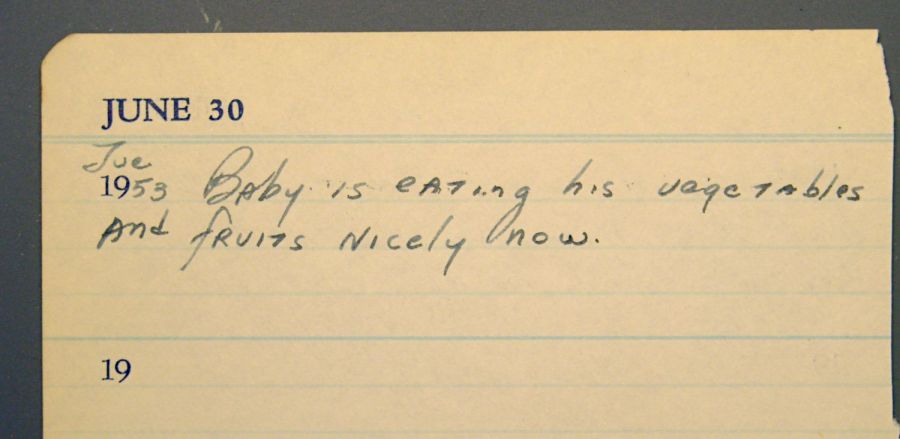 JUNE 30
Tue
1953 Baby is eating his vegetables
And fruits nicely now.
19